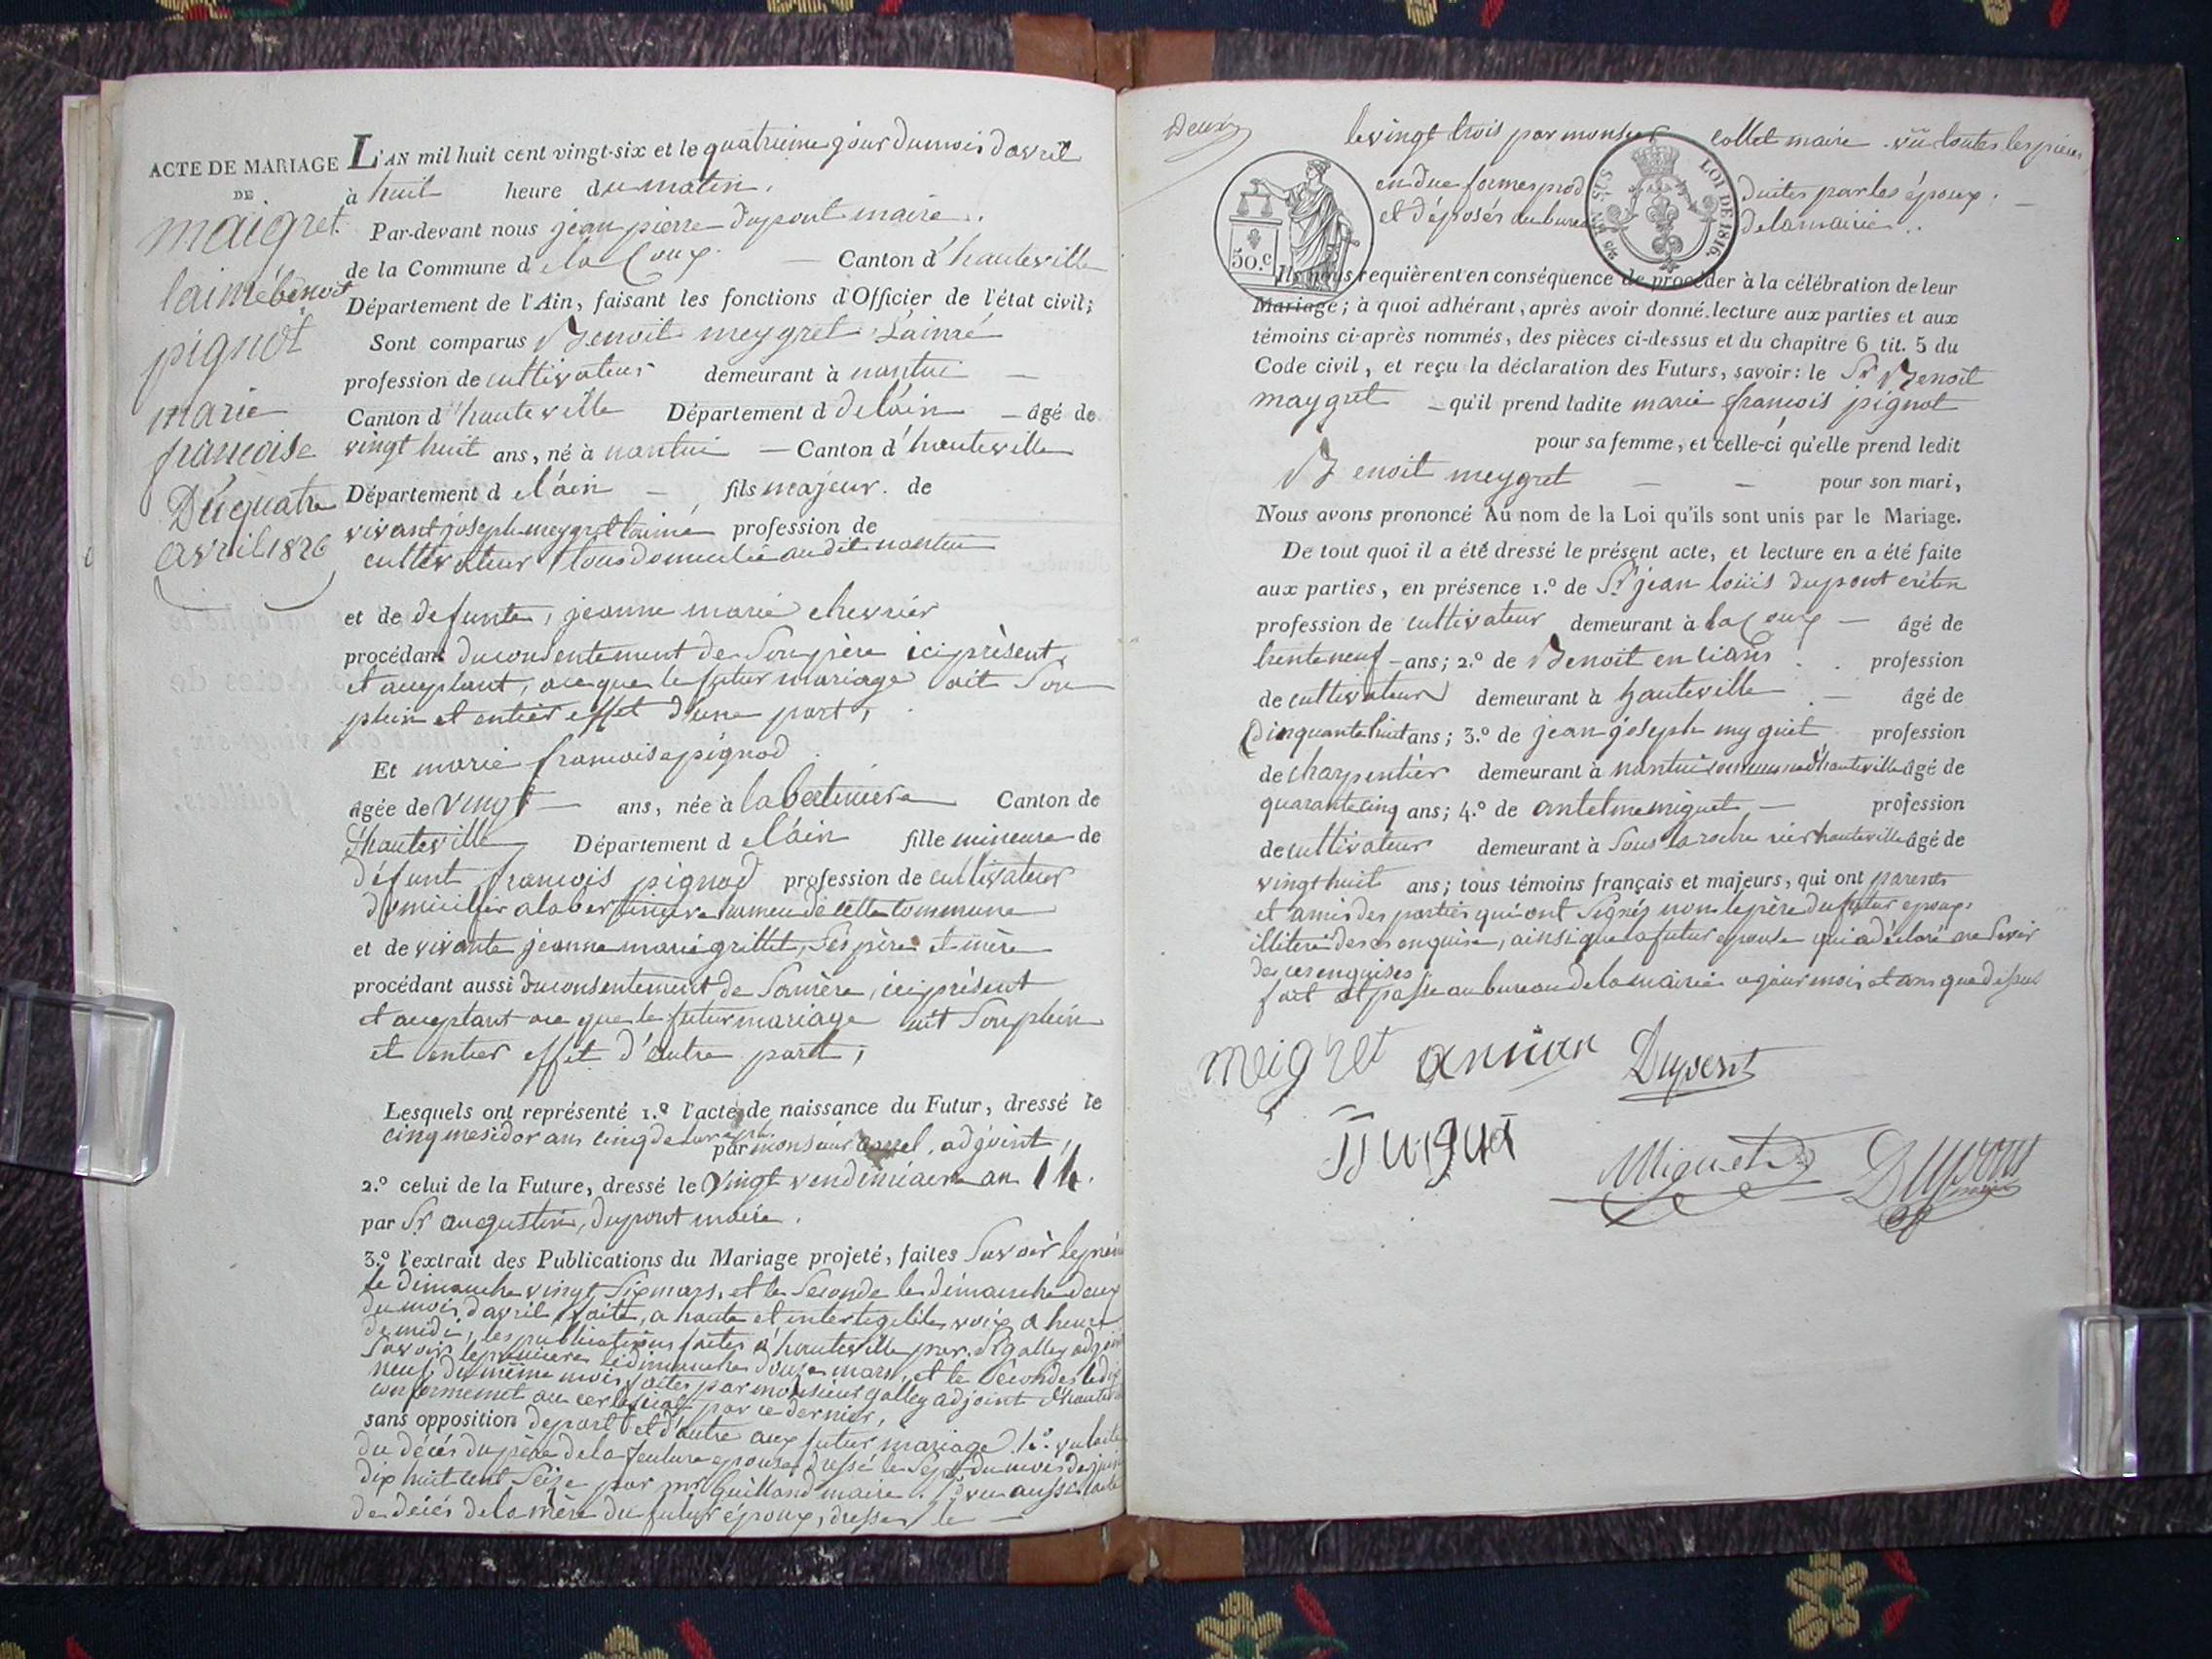 ACTE DE MARIAGE
DE
maigret
laimé benoit
pignot
marie
francoise
Du quatre
avril 1826
L'AN mil huit cent vingt-six et le quatrieme jour du mois d'avril
à huit heure du matin.
Par-devant nous jean pierre dupont maire.
de la Commune d ela Coux — Canton d'hauteville
Département de l'Ain, faisant les fonctions d'Officier de l'état civil;
Sont comparus Benoit meygret Lainné
profession de cultivateur demeurant à nantui —
Canton d'hauteville Département d delain — âgé de
vingt huit ans, né à nantui — Canton d'hauteville
Département d el'ain — fils majeur de
vivant joseph meygret lainné profession de
cultivateur tous domicilié audit nantui
et de defunte, jeanne marie chevrier
procédant du consentement de Son père ici présent,
et aceptant, a ce que le futur mariage ait Son
plein et entier effet d'une part,
Et marie francoise pignod
âgée de vingt — ans, née à la bertiniere Canton de
d'hauteville Département d el'ain fille mineure de
défunt francois pignod profession de cultivateur
domicilier a la ber hameu de cette Commune
et de vivante jeanne marie grillet, Ses père et mère
procédant aussi du consentement de Sa mère, ici présent
et aceptant a ce que le futur mariage ait Son plein
et entier effet d'autre part;
Lesquels ont représenté 1.º l'acte de naissance du Futur, dressé le
cinq mesidor ans cinq de la rep.
par monsieur adjoint,
2.º celui de la Future, dressé le vingt vendemiaire an 14.
par Sr augustin, dupont maire.
3.º l'extrait des Publications du Mariage projeté, faites Savoir le
le dimanche vingt Six mars, et la Seconde le dimanche deux
du mois d'avril faite, a haute et voix a heure
de midi, les publications faites a hauteville par Sr galley adjoint
Savoir la premiere le dimanche douze mars, et la Seconde le dix
neuf du même mois faites par monsieur galley adjoint d'hauteville
conformement au certificat par ce dernier,
sans opposition de part et d'autre aux futur mariage. 4.º vu l'acte
du décés du père de la feuture epouse dressé le Sept du mois de juin
dix huit cent Seize par mr Guilland maire. 5.º vu aussi l'acte
de décés de la mère du futur époux, dresser le —
Deux
le vingt trois par monsieur collet maire. vû toutes les pieces
en due formes prod duites par les époux. —
et déposés au bureau de la mairie.
50.c
LOI DE 1816.
Ils nous requièrent en conséquence de procéder à la célébration de leur
Mariage; à quoi adhérant, après avoir donné lecture aux parties et aux
témoins ci-après nommés, des pièces ci-dessus et du chapitre 6 tit. 5 du
Code civil, et reçu la déclaration des Futurs, savoir: le Sr Benoit
maygret — qu'il prend ladite marie francois pignot
pour sa femme, et celle-ci qu'elle prend ledit
Benoit meygret — — pour son mari,
Nous avons prononcé Au nom de la Loi qu'ils sont unis par le Mariage.
De tout quoi il a été dressé le présent acte, et lecture en a été faite
aux parties, en présence 1.º de Sr jean loüis dupont
profession de cultivateur demeurant à la Coux — âgé de
trente neuf — ans; 2.º de Benoit profession
de cultivateur demeurant à hauteville — âgé de
Cinquante huit ans; 3.º de jean joseph myguet profession
de charpentier demeurant à nantui d'hauteville âgé de
quarante cinq ans; 4.º de antelme miguet — profession
de cultivateur demeurant à Sous la roche hauteville âgé de
vingt huit ans; tous témoins français et majeurs, qui ont parents
et amis des parties qui ont Signés non le père du futur epoux
illiteré de ce enquise, ainsi que la futur epouse qui a déclaré ne Savoir
de ce enquises
fait et passé au bureau de la mairie a jour mois et ans que dessus
meigret Dupont
Miguet Dupont maire